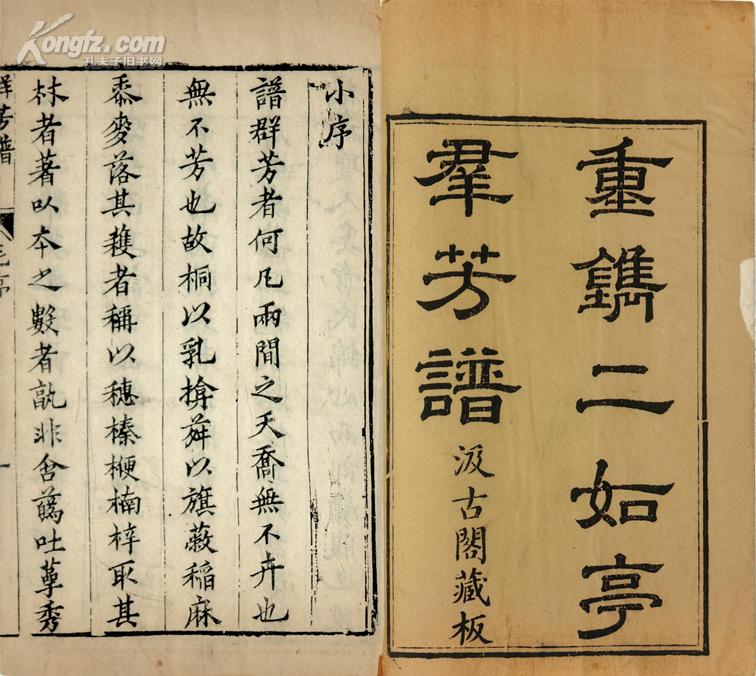 重鐫二如亭
羣芳譜
汲古閣藏板
小序
譜群芳者何凡兩間之夭喬無不卉也
無不芳也故桐以乳搶葬以旗蔌稲麻
黍麥落其穫者稱以穗榛梗楠梓取其
材者著以本之數者孰非含蕍吐蕚秀
群芳譜
Kongfz.com
孔夫子旧书网